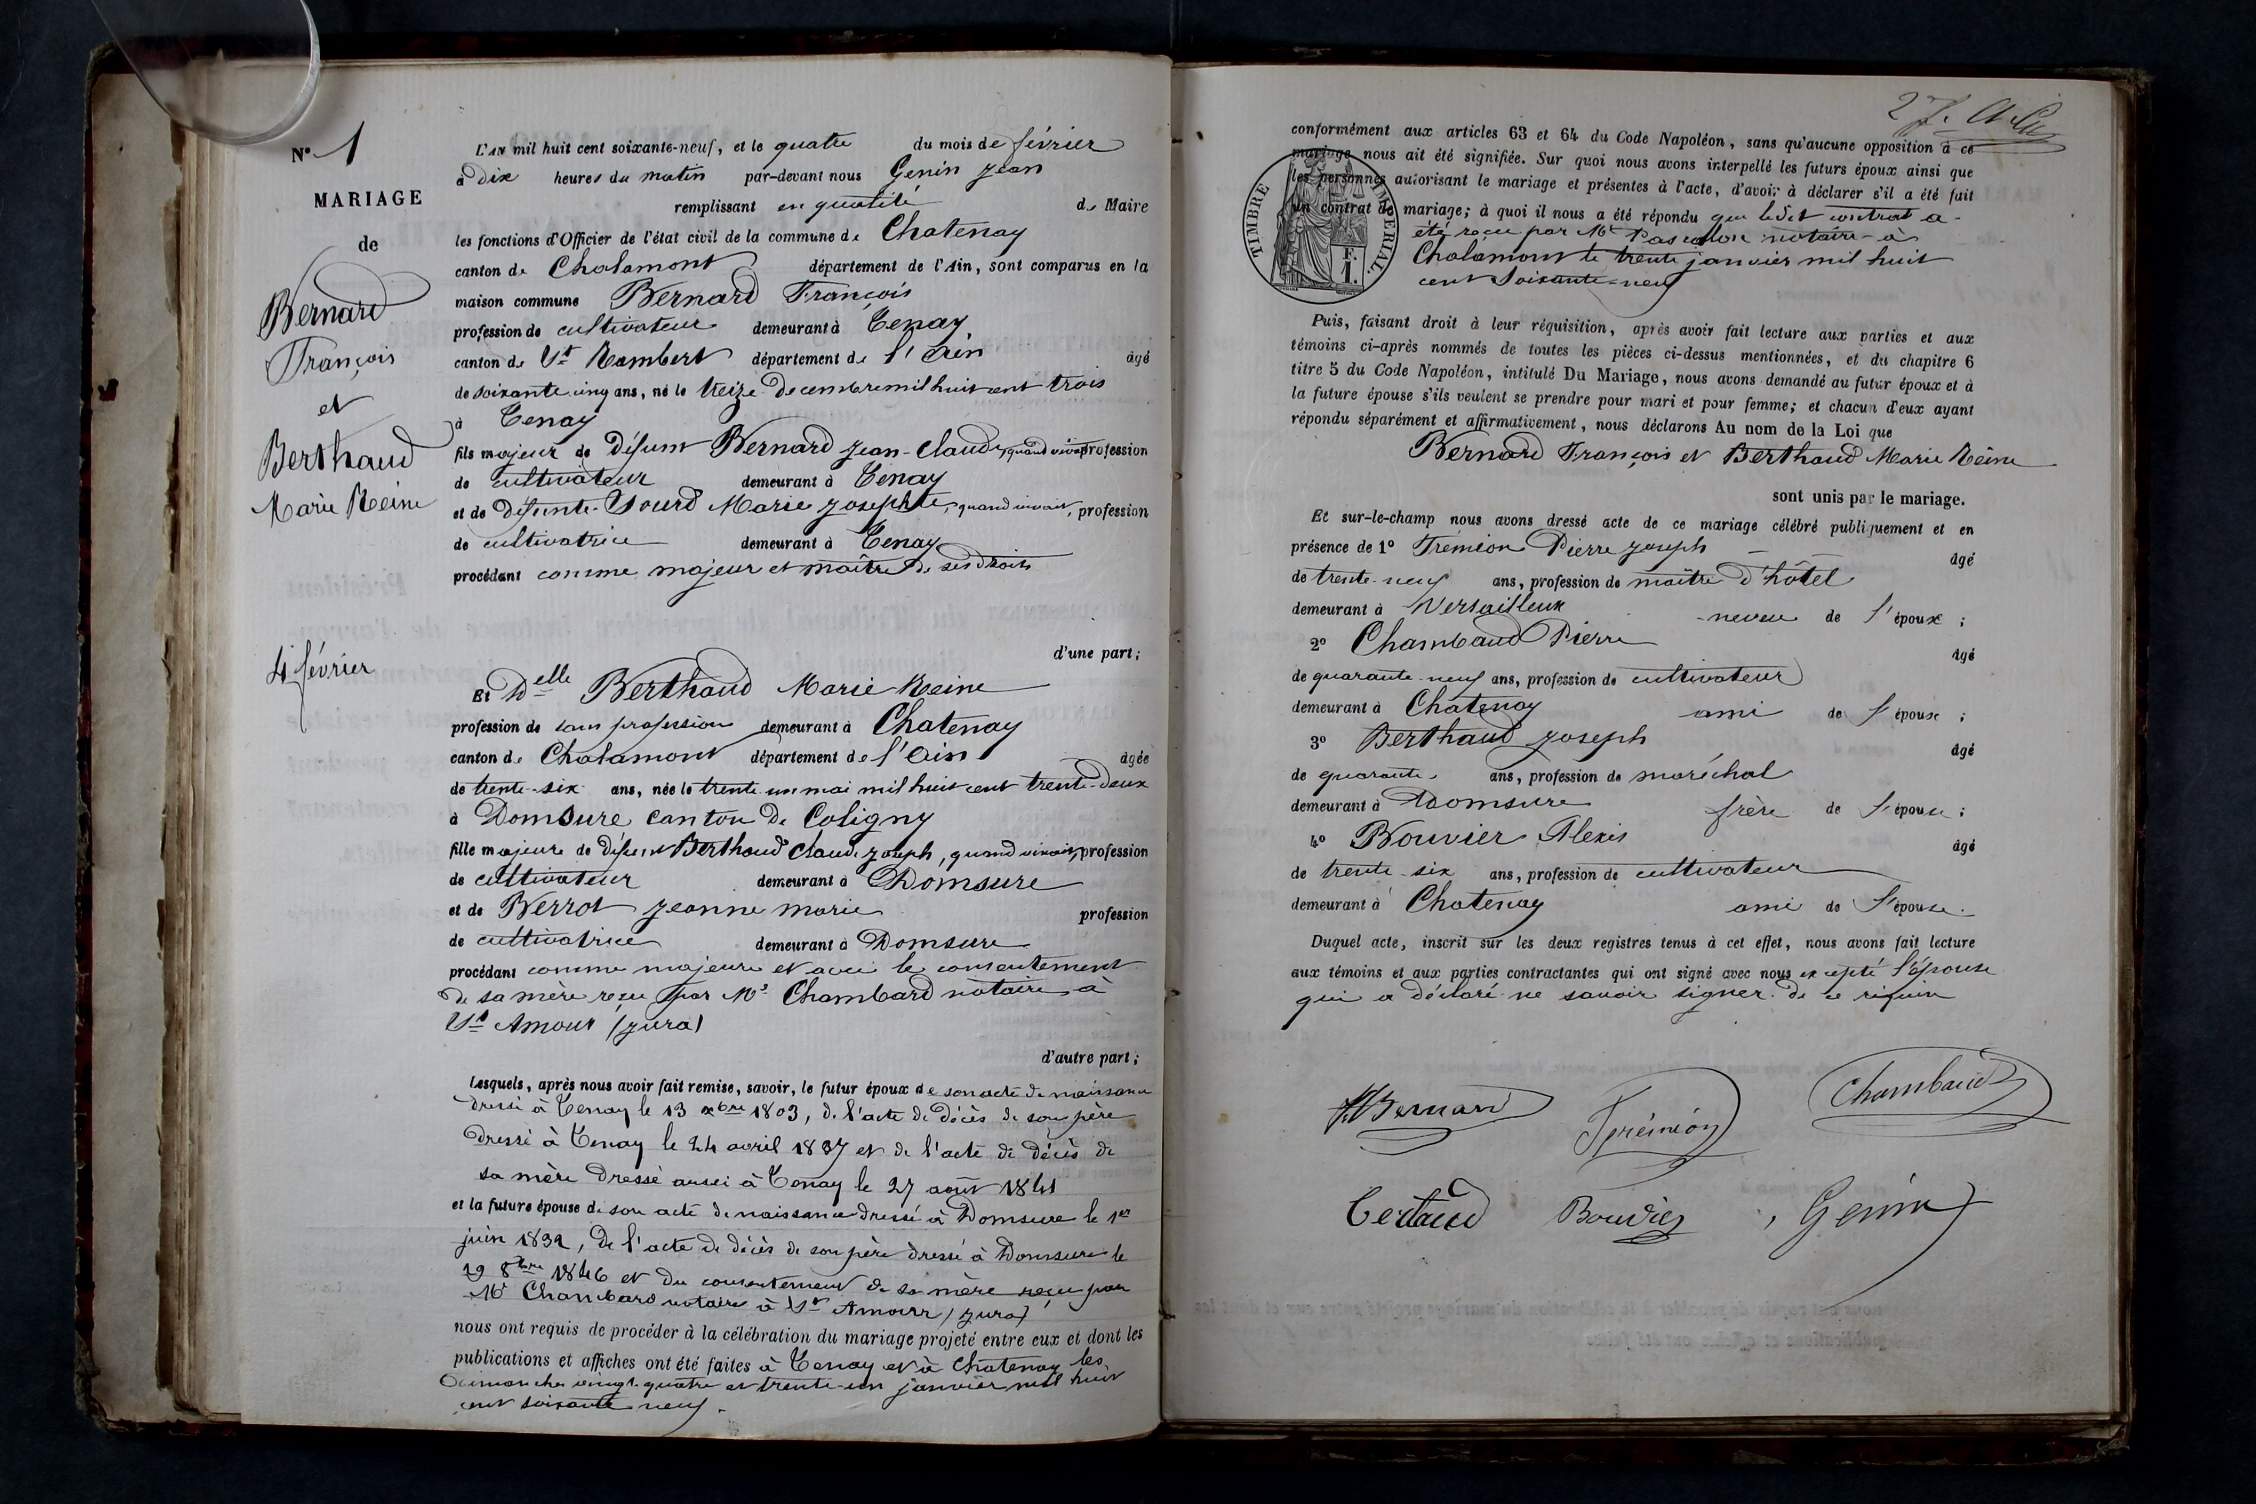 N° 1
MARIAGE
de
Bernard
François
et
Berthaud
Marie Reine
4 février
L'AN mil huit cent soixante-neuf, et le quatre du mois de février
à dix heures du matin par-devant nous Genin Jean
remplissant en qualité de Maire
les fonctions d'Officier de l'état civil de la commune de Chatenay
canton de Chalamont département de l'Ain, sont comparus en la
maison commune Bernard François
profession de cultivateur demeurant à Tenay
canton de St Rambert département de l'Ain âgé
de soixante cinq ans, né le treize décembre mil huit cent trois
à Tenay
fils majeur de défunt Bernard Jean-Claude, quand vivait profession
de cultivateur demeurant à Tenay
et de défunte Sourd Marie Josephte, quand vivait, profession
de cultivatrice demeurant à Tenay
procédant comme majeur et maître de ses droits
d'une part;
Et Delle Berthaud Marie Reine
profession de sans profession demeurant à Chatenay
canton de Chalamont département de l'Ain âgée
de trente-six ans, née le trente un mai mil huit cent trente-deux
à Domsure canton de Coligny
fille majeure de défunt Berthaud Claude Joseph, quand vivait, profession
de cultivateur demeurant à Domsure
et de Berrot Jeanne Marie profession
de cultivatrice demeurant à Domsure
procédant comme majeure et avec le consentement
de sa mère reçu par Me Chambard notaire à
St Amour (Jura)
d'autre part;
Lesquels, après nous avoir fait remise, savoir, le futur époux de son acte de naissance
dressé à Tenay le 13 xbre 1803, de l'acte de décès de son père
dressé à Tenay le 24 avril 1837 et de l'acte de décès de
sa mère dressé aussi à Tenay le 27 août 1841
et la future épouse de son acte de naissance dressé à Domsure le 1er
juin 1832, de l'acte de décès de son père dressé à Domsure le
19 8bre 1846 et du consentement de sa mère reçu par
Me Chambard notaire à St Amour (Jura)
nous ont requis de procéder à la célébration du mariage projeté entre eux et dont les
publications et affiches ont été faites à Tenay et à Chatenay les
dimanches vingt-quatre et trente-un janvier mil huit
cent soixante neuf.
conformément aux articles 63 et 64 du Code Napoléon, sans qu'aucune opposition à ce
mariage nous ait été signifiée. Sur quoi nous avons interpellé les futurs époux ainsi que
les personnes autorisant le mariage et présentes à l'acte, d'avoir à déclarer s'il a été fait
un contrat de mariage; à quoi il nous a été répondu que ledit contrat a
été reçu par Me notaire à
Chalamont le trente janvier mil huit
cent soixante-neuf
TIMBRE IMPÉRIAL.
F.
1.
Puis, faisant droit à leur réquisition, après avoir fait lecture aux parties et aux
témoins ci-après nommés de toutes les pièces ci-dessus mentionnées, et du chapitre 6
titre 5 du Code Napoléon, intitulé Du Mariage, nous avons demandé au futur époux et à
la future épouse s'ils veulent se prendre pour mari et pour femme; et chacun d'eux ayant
répondu séparément et affirmativement, nous déclarons Au nom de la Loi que
Bernard François et Berthaud Marie Reine
sont unis par le mariage.
Et sur-le-champ nous avons dressé acte de ce mariage célébré publiquement et en
présence de 1° Trémion Pierre Joseph âgé
de trente-neuf ans, profession de maître d'hôtel
demeurant à Versailleux neveu de l'époux;
2° Chambaud Pierre âgé
de quarante-neuf ans, profession de cultivateur
demeurant à Chatenay ami de l'épouse;
3° Berthaud Joseph âgé
de quarante ans, profession de maréchal
demeurant à Domsure frère de l'épouse;
4° Bouvier Alexis âgé
de trente-six ans, profession de cultivateur
demeurant à Chatenay ami de l'épouse.
Duquel acte, inscrit sur les deux registres tenus à cet effet, nous avons fait lecture
aux témoins et aux parties contractantes qui ont signé avec nous excepté l'épouse
qui a déclaré ne savoir signer de ce requise
Bernard
Trémion
Chambaud
Bertaud
Bouvier
Genin